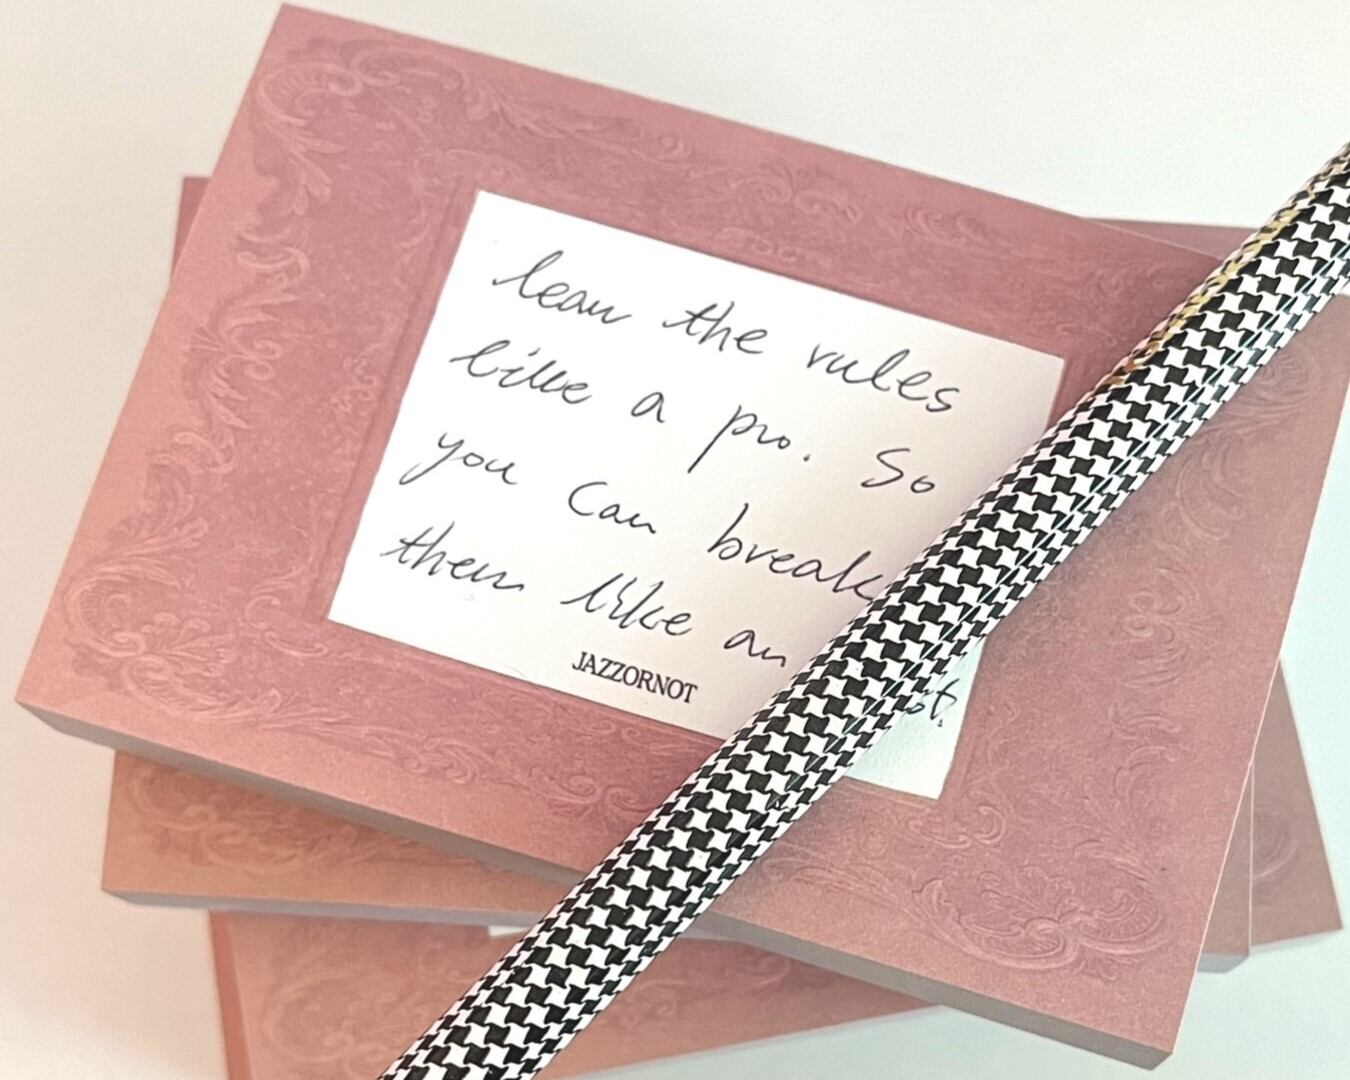 learn the rules
like a pro. So
you can break
them like an
JAZZORNOT